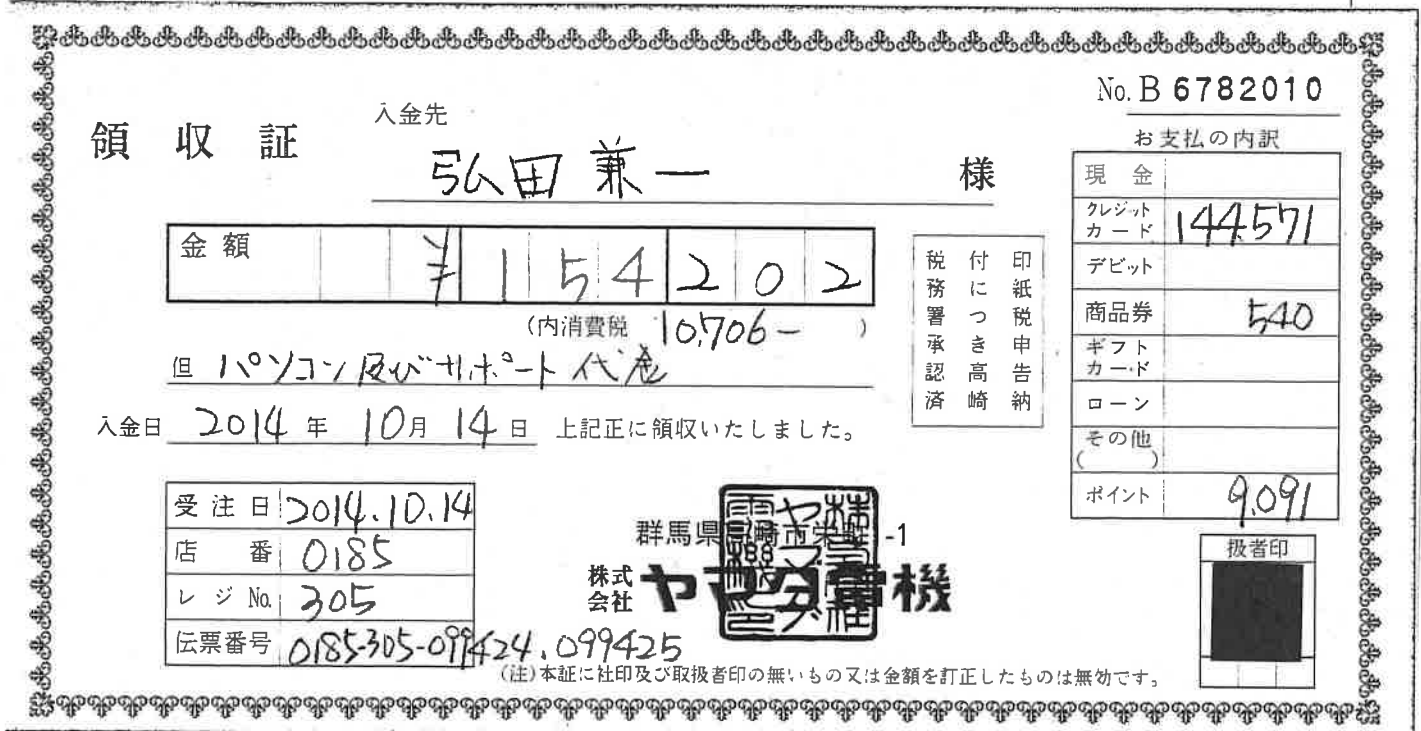 No. B 6782010
領収証
入金先
弘田兼一 様
金額 ¥154202
(内消費税 10,706- )
但 パソコン及びサポート代金
入金日 2014年 10月 14日 上記正に領収いたしました。
印紙税申告納
付につき高崎
税務署承認済
お支払の内訳
現金
クレジットカード 144,571
デビット
商品券 540
ギフトカード
ローン
その他
( )
ポイント 9,091
扱者印
受注日 2014.10.14
店番 0185
レジNo. 305
伝票番号 0185-305-099424.099425
群馬県高崎市栄町1-1
株式会社 ヤマダ電機
(注)本証に社印及び取扱者印の無いもの又は金額を訂正したものは無効です。